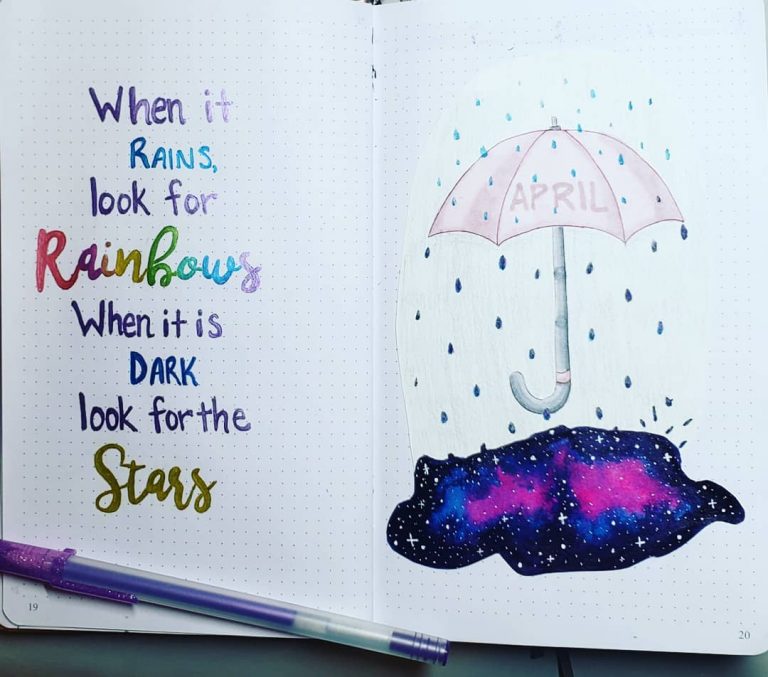 When it
RAINS,
look for
Rainbows
When it is
DARK
look for the
Stars
19
APRIL
20